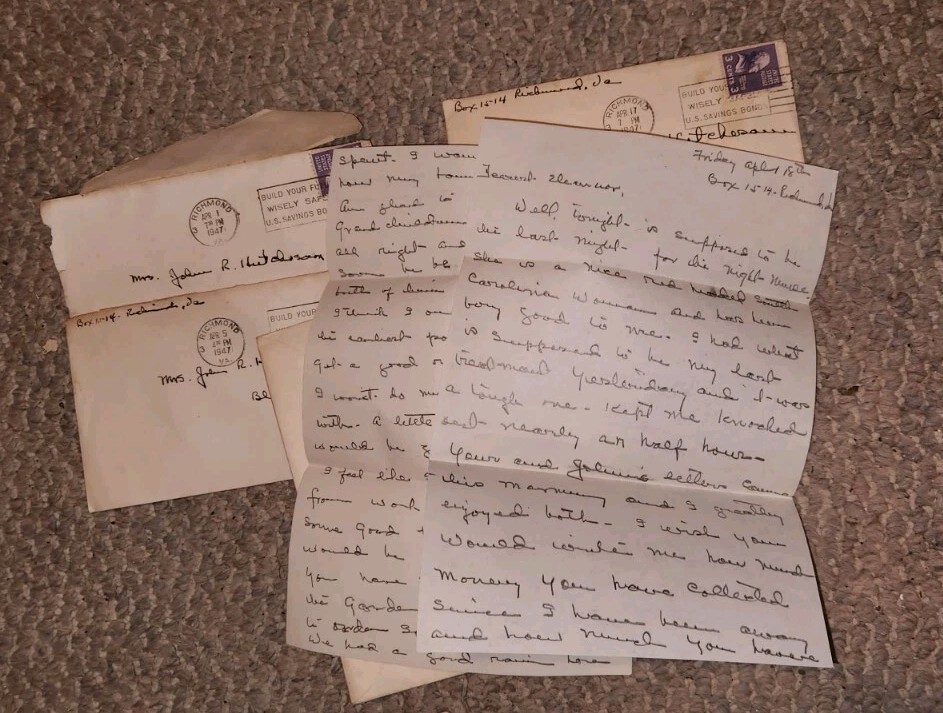 Box 15-14 Richmond, Va
RICHMOND
APR 17
7 PM
1947
BUILD YOUR
WISELY SAFE
U.S. SAVINGS BOND
3 CENTS 3
Hutcheson
RICHMOND
APR 1
7 PM
1947
VA.
BUILD YOUR FU
WISELY SAF
U.S. SAVINGS BO
Mrs. John R. Hutcheson
Box 15-14- Richmond, Va
RICHMOND
APR 5
PM
1947
VA.
BUILD YOUR
Mrs. John R. H
Bl
spent. I wan
how my
Am glad to
Grandchildren
all right and
soon be
both of
I think I
the earliest po
Get a good
I want to
with a little
would be
I feel like
from work
some Good
would be
You have
the Garden
to
We had a good rain here
Friday April 18th
Box 15-14- Richmond,
Dearest Eleanor,
Well, tonight is supposed to be
the last night for the night nurse.
She is a nice Smith
Carolina woman and has been
very good to me. I had what
is supposed to be my last
treatment yesterday and it was
a tough one. Kept me knocked
out nearly an half hour-
Yours and Johnnie letters came
this morning and I greatly
enjoyed both. I wish you
would write me how much
money you have collected
since I have been away
and how much you have